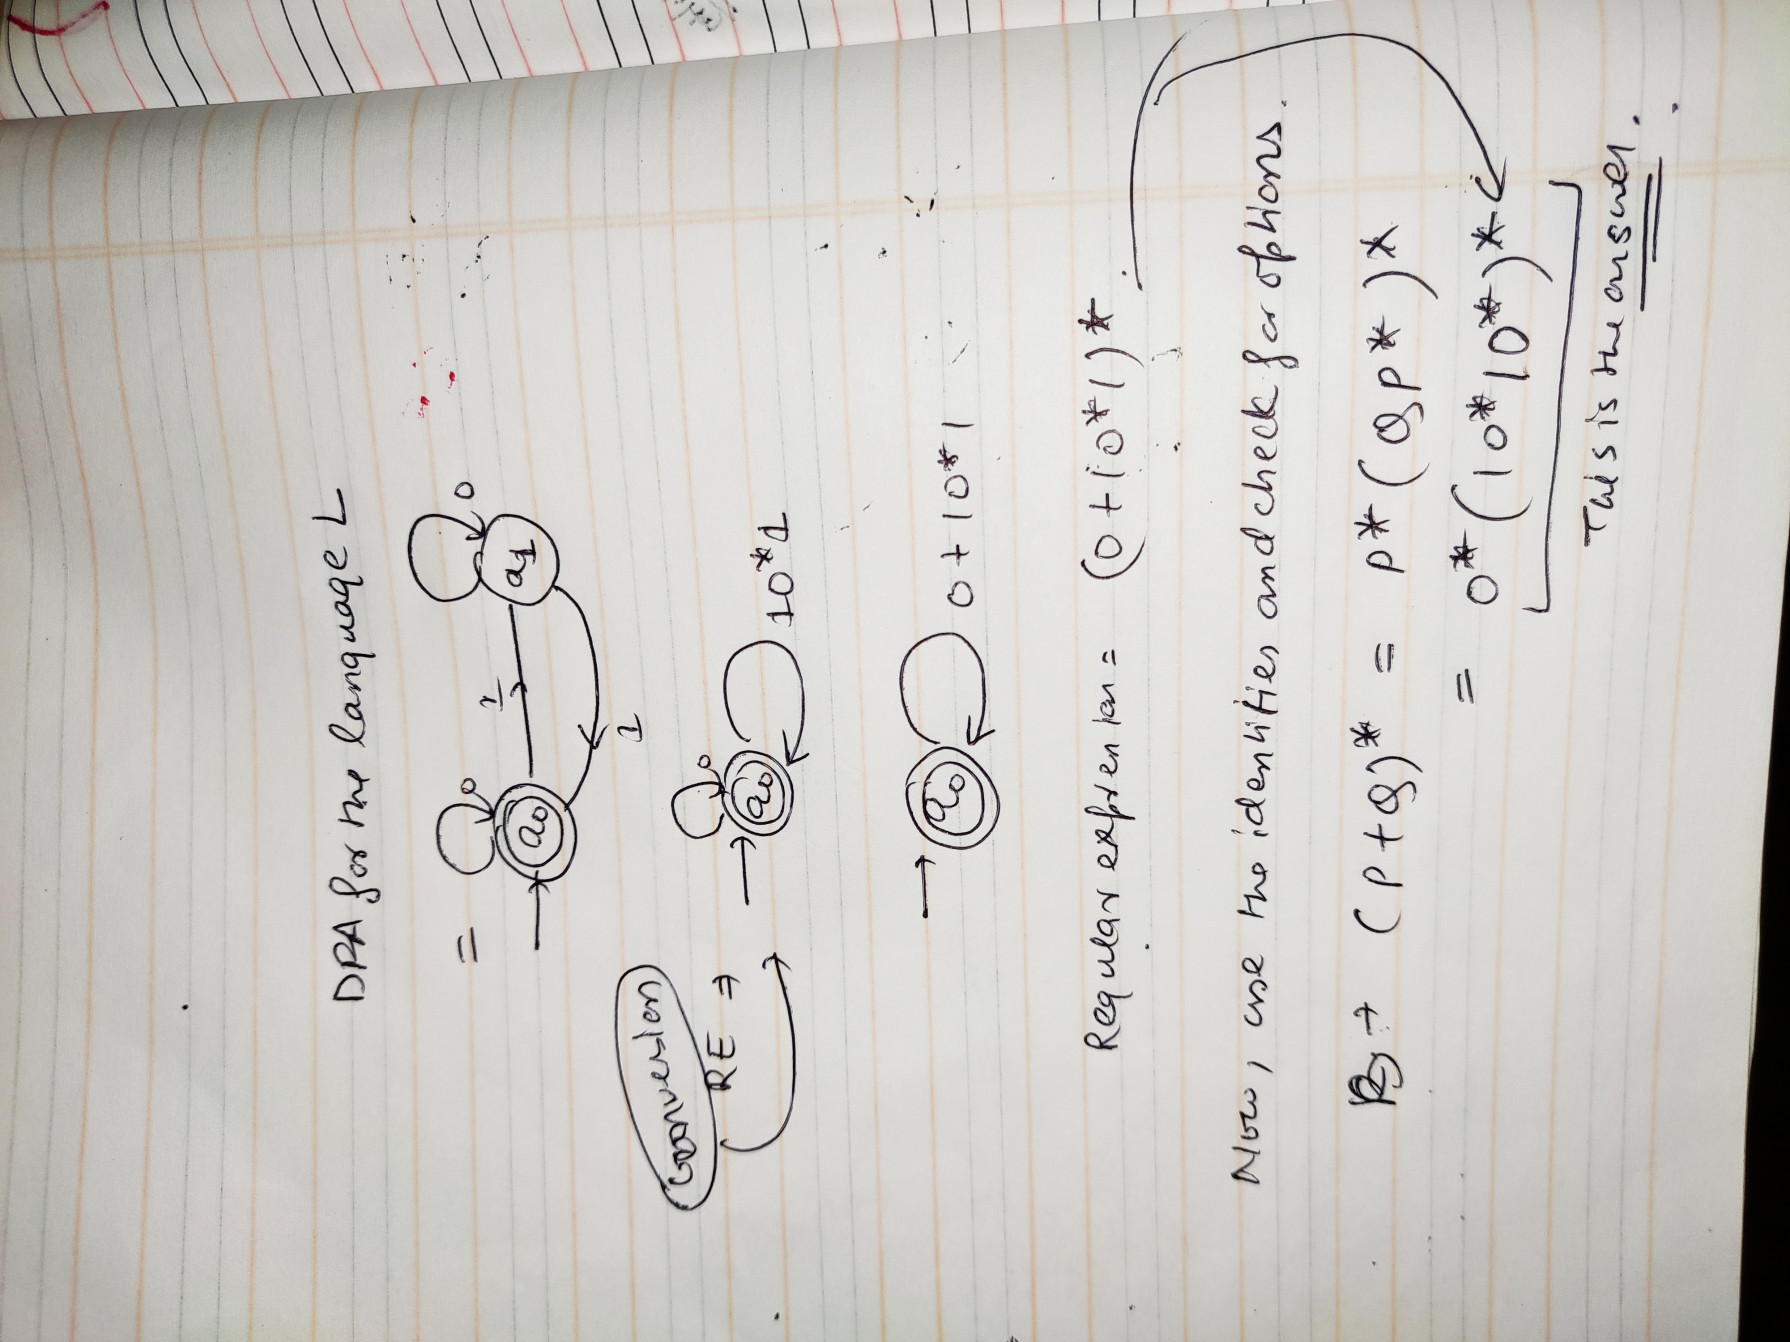 DFA for the language L
=
0 0
1
q0 q1
1
Conversion
RE ⇒
0
q0
10*1
q0
0+10*1
Regular expression = (0+10*1)*
Now, use the identities and check for options.
→ (P+Q)* = P*(QP*)*
= 0*(10*10*)*
This is the answer.